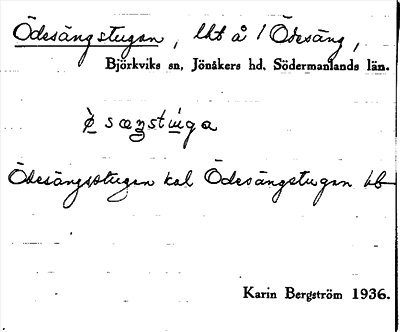 Ödesängstugan, lht å 1 Ödesäng,
Björkviks sn, Jönåkers hd, Södermanlands län.
Ödesängsstugan kal Ödesängstugan hb
Karin Bergström 1936.